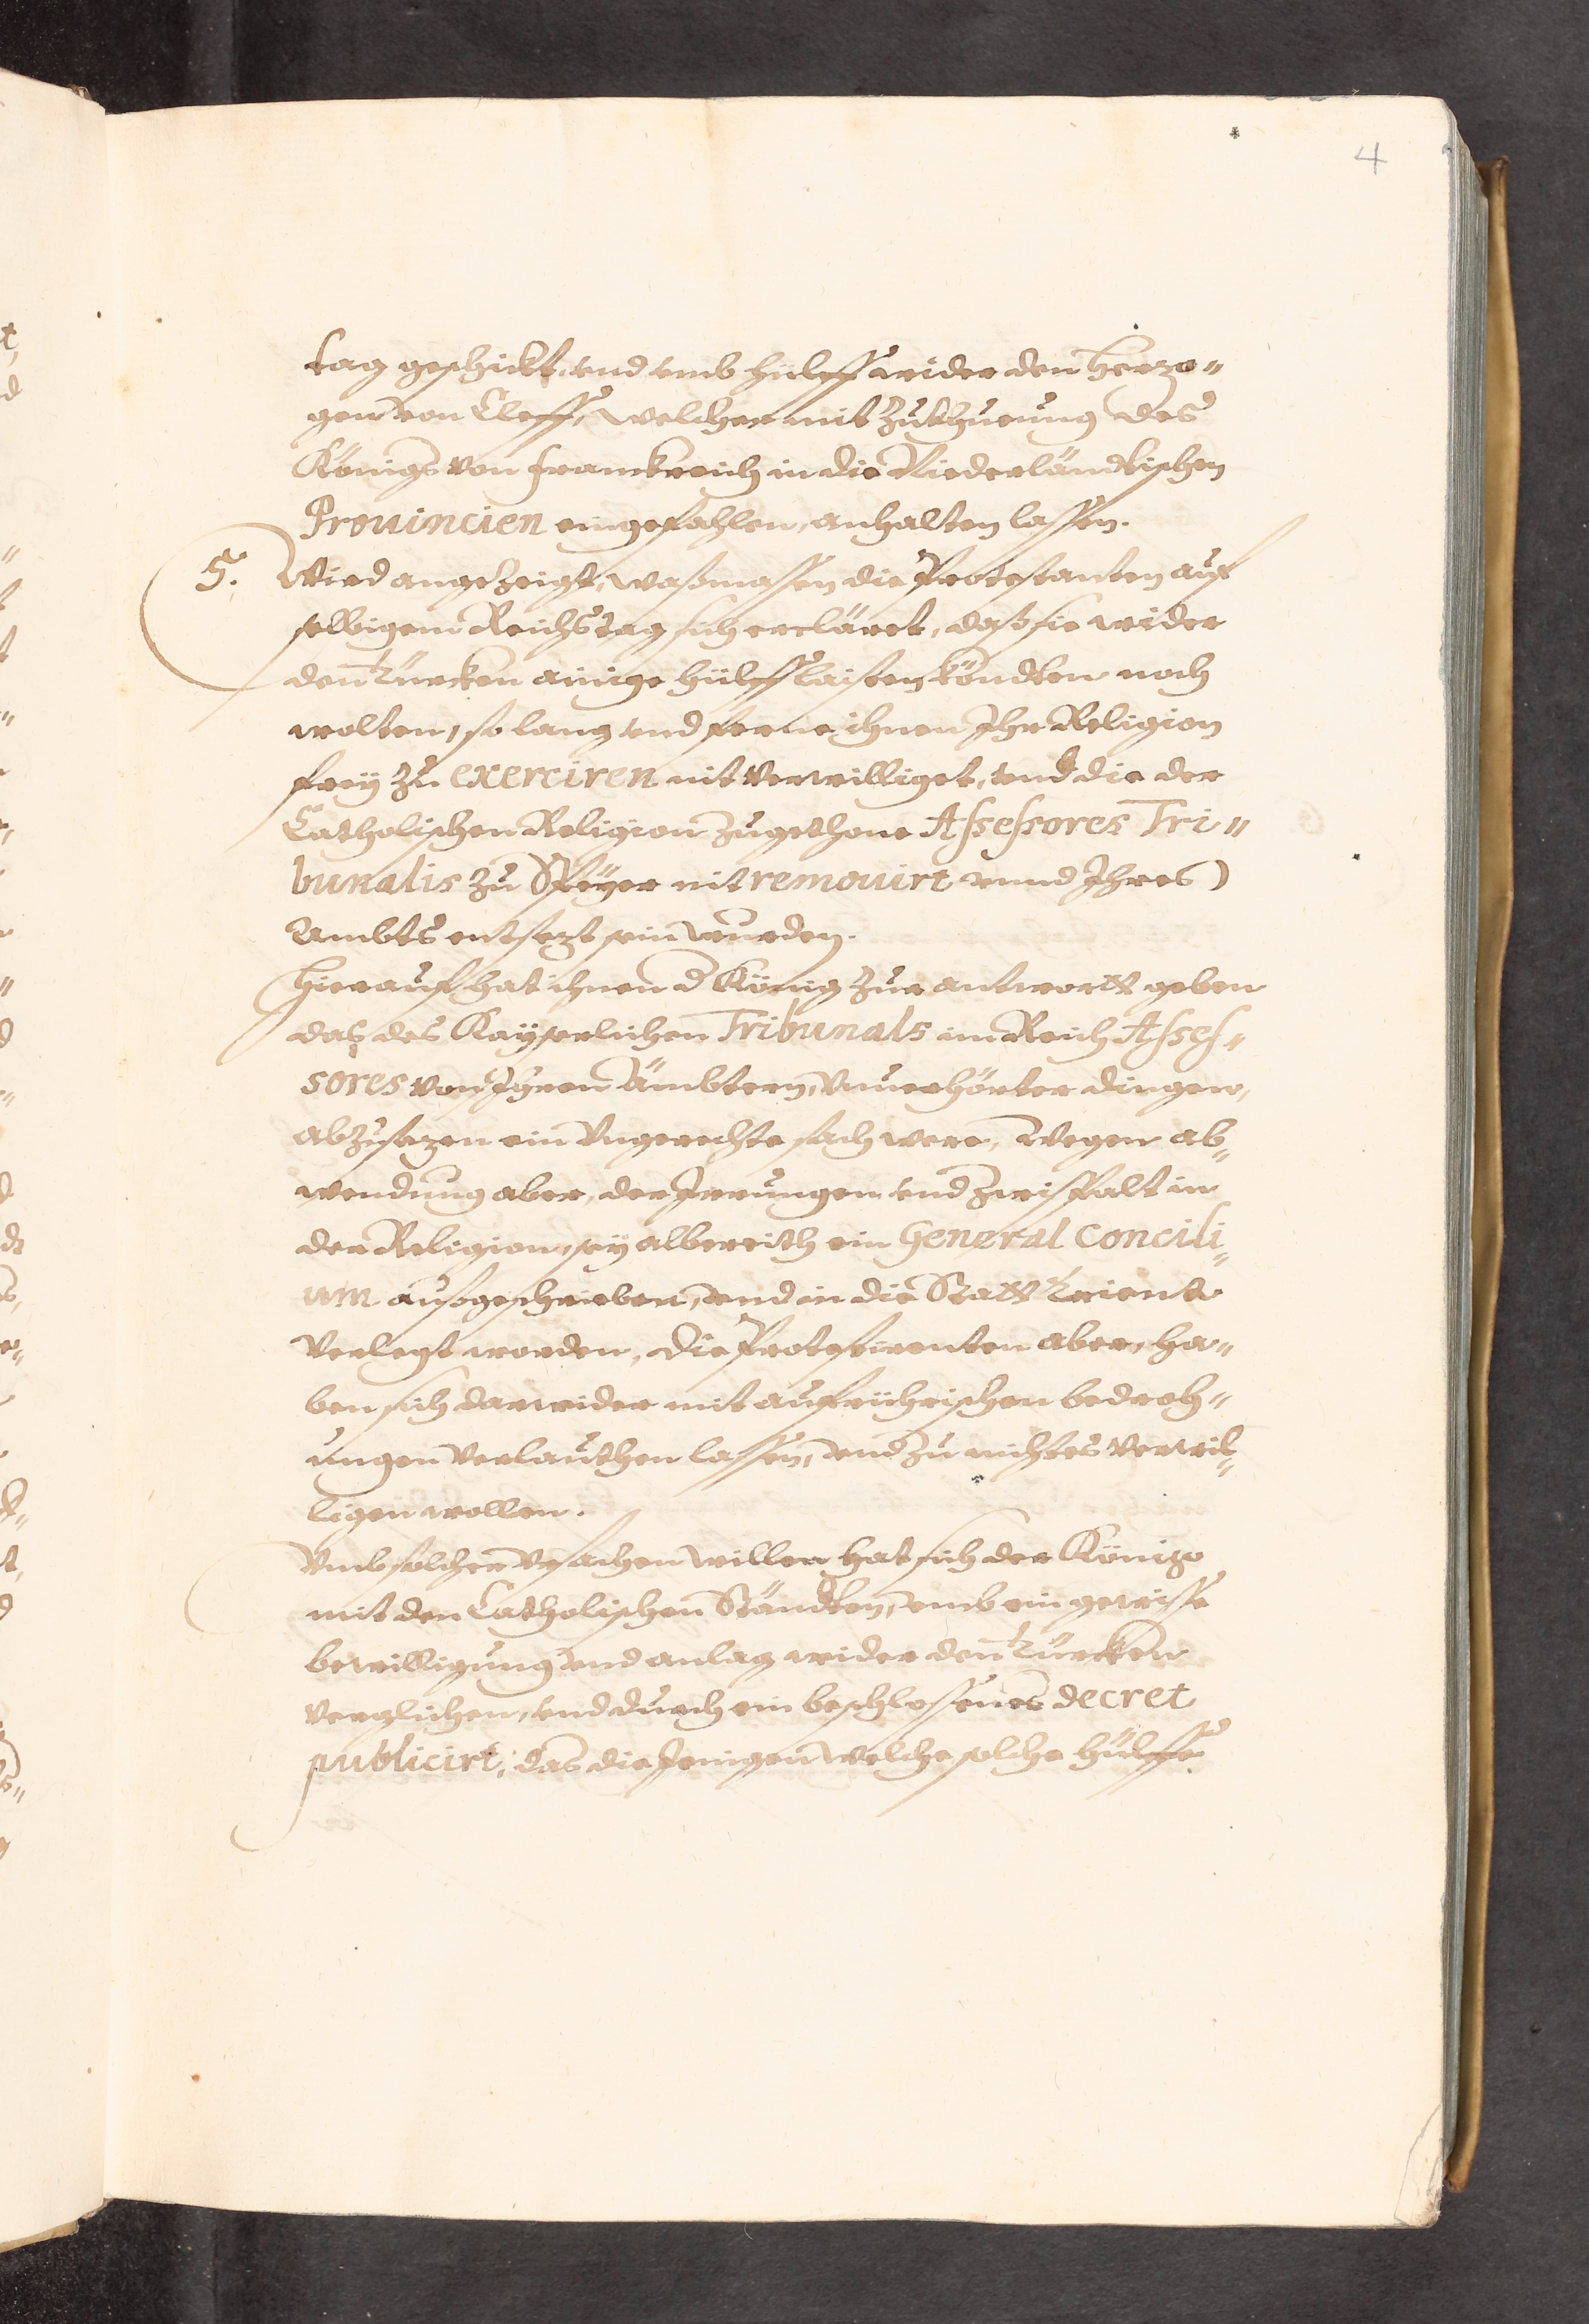 4
tag geschickt, vnd vmb hülff wider den Herzo„
gen von Cleff, welcher mit Zuthueung des
Königs von Franckreich in die Niederländtischen
Prouincien eingefahlen, anhalten lassen.
5. Wird angezeigt, waßmassen die Protestanten auf
selbigem Reichstag sich erclärt, daß sie wider
den Türcken ainige hülff laisten köndten noch
wolten, so lang vnd ferne ihnen Ihr Religion
freÿ zu exerciren nit verwilliget, vnd die der
Catholischen Religion zugethone Assessores Tri„
bunalis zu Speÿer nit remouirt vnnd Ihres
Ambts entsezt sein wurden.
Hierauf hat ihnen d König zur antwortt geben
das des Kaÿserlichen Tribunals im Reich Asses„
sores von Ihren Ämbtern, vnuerhörter dingen,
abzusezen ein vngerechte sach were, Wegen ab„
wendung aber, der Irrungen vnd Zwispalt in
der Religion, seÿ albereith ein General Concili„
um außgeschrieben, vnd in die Statt Trient
verlegt worden, die Protestirenten aber, ha„
ben sich darwider mit aufrührischen bedroh„
ungen verlauthen lassen, vnd zu nichtes verwil„
ligen wollen.
Vmb solcher vrsachen willen hat sich der König
mit den Catholischen Ständten, vmb ein gewisse
bewilligung vnd anlag wider den Türcken
verglichen, vnd durch ein beschlossenes decret
publicirt, das die Jenigen welche solche hülffe